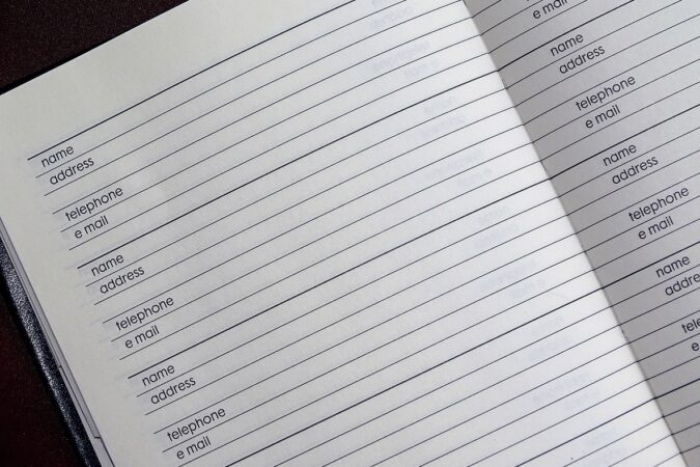 name
address
telephone
e mail
name
address
telephone
e mail
name
address
telephone
e mail
e mail
name
address
telephone
e mail
name
address
telephone
e mail
name
addre
tele
e